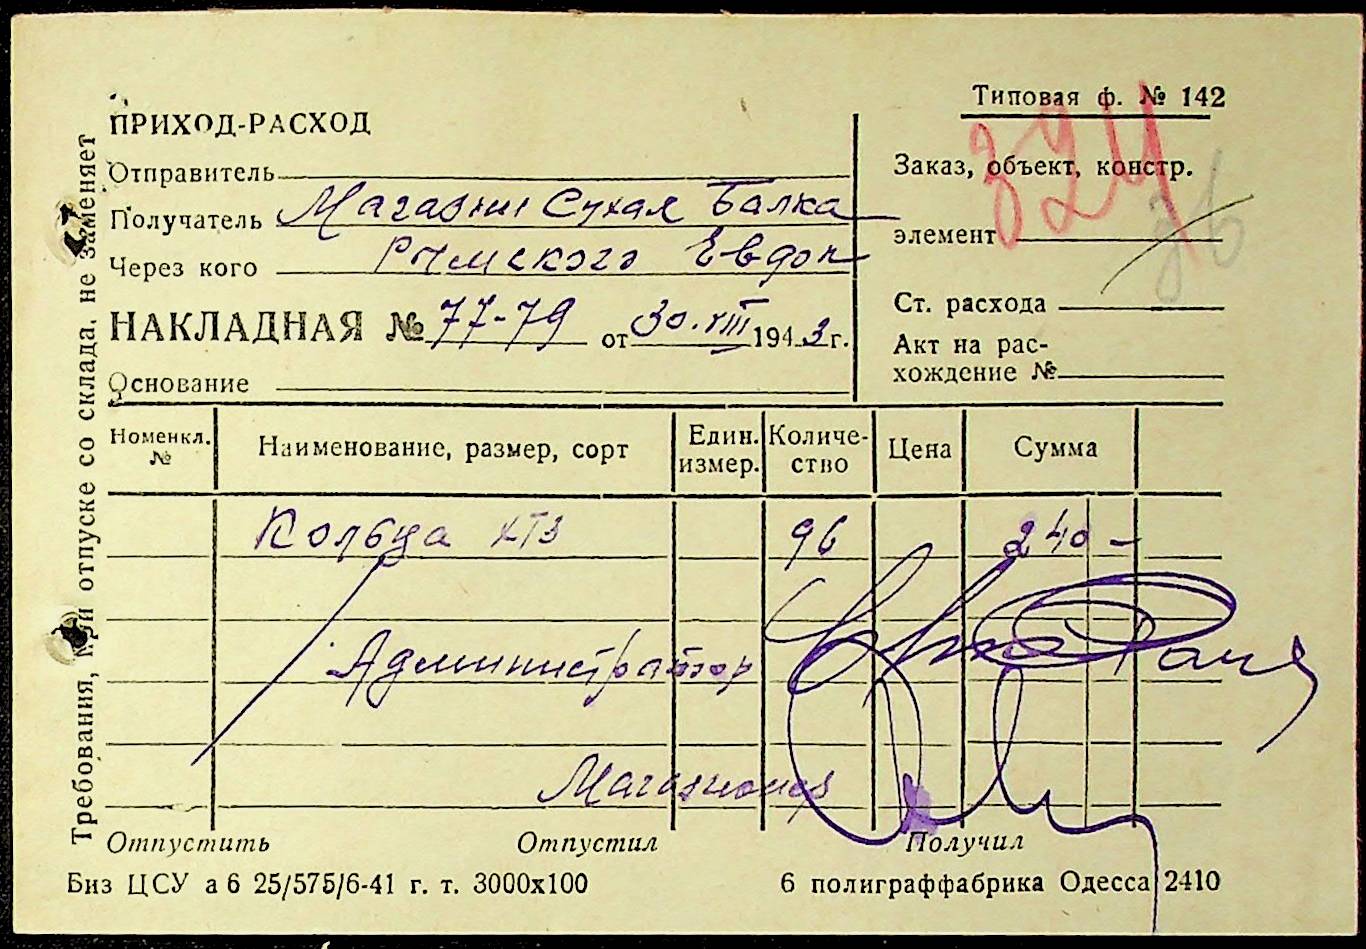 Типовая ф. № 142
ПРИХОД-РАСХОД
Отправитель
Получатель Магазин Сухая Балка
Через кого Римского Евдок
НАКЛАДНАЯ № 77-79 от 30.VIII 1943 г.
Основание
324
36
Заказ, объект, констр.
элемент
Ст. расхода
Акт на рас-
хождение №
Номенкл. № Наименование, размер, сорт Един. измер. Количе-ство Цена Сумма
Кольца ХТЗ 96 240 -
Администратор
Магазинер
Отпустить Отпустил Получил
Биз ЦСУ а 6 25/575/6-41 г. т. 3000х100 6 полиграффабрика Одесса 2410
Требования, при отпуске со склада, не заменяет